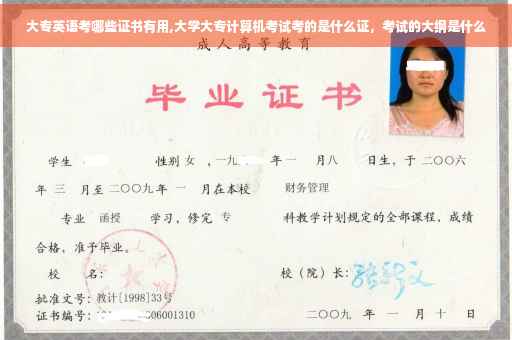 大专英语考哪些证书有用,大学大专计算机考试考的是什么证，考试的大纲是什么
成人高等教育
毕业证书
学生 性别 女 ，一九 年 一 月八 日生，于 二〇〇六
年 三 月至 二〇〇九 年 一 月在本校 财务管理
专业 函授 学习，修完 专 科教学计划规定的全部课程，成绩
合格，准予毕业。
校 名： 校（院）长：
批准文号：教计[1998]33号
证书编号： 006001310 二〇〇九 年 一 月 十 日